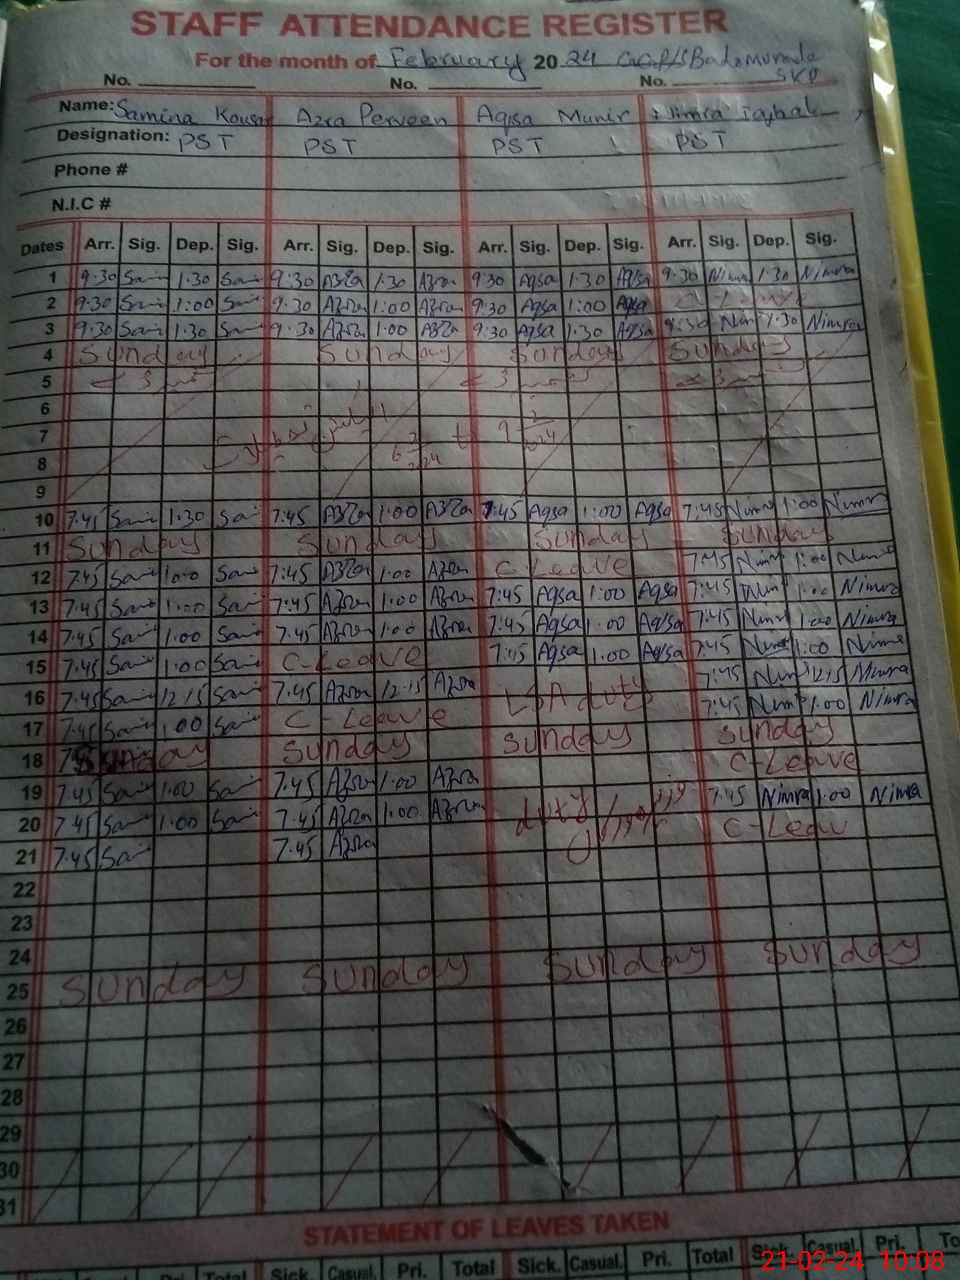 STAFF ATTENDANCE REGISTER
For the month of February 20 24
No. No. No. SKP
Name: Samina Kousar Azra Perveen Aqsa Munir Nimra Iqbal
Designation: PST PST PST PST
Phone #
N.I.C #
Dates Arr. Sig. Dep. Sig. Arr. Sig. Dep. Sig. Arr. Sig. Dep. Sig. Arr. Sig. Dep. Sig.
1 9:30 Sami 1:30 Sami 9:30 Azra 1:30 Azra 9:30 Aqsa 1:30 Aqsa 9:30 Nimra 1:30 Nimra
2 9:30 Sami 1:00 Sami 9:30 Azra 1:00 Azra 9:30 Aqsa 1:00 Aqsa
3 9:30 Sami 1:30 Sami 9:30 Azra 1:00 Azra 9:30 Aqsa 1:30 Aqsa 9:30 Nim 1:30 Nimra
4 Sunday Sunday Sunday Sunday
5
6
7
8
9
10 7:45 Sami 1:30 Sami 7:45 Azra 1:00 Azra 7:45 Aqsa 1:00 Aqsa 7:45 Nimra 1:00 Nimra
11 Sunday Sunday Sunday Sunday
12 7:45 Sami 1:00 Sami 7:45 Azra 1:00 Azra C-Leave 7:45 Nimr 1:00 Nimra
13 7:45 Sami 1:00 Sami 7:45 Azra 1:00 Azra 7:45 Aqsa 1:00 Aqsa 7:45 Nim 1:00 Nimra
14 7:45 Sami 1:00 Sami 7:45 Azra 1:00 Azra 7:45 Aqsa 1:00 Aqsa 7:45 Nimr 1:00 Nimra
15 7:45 Sami 1:00 Sami C-Leave 7:45 Aqsa 1:00 Aqsa 7:45 Nimr 1:00 Nimra
16 7:45 Sami 12:15 Sami 7:45 Azra 12:15 Azra LSA duty 7:45 Nimr 12:15 Nimra
17 7:45 Sami 1:00 Sami C-Leave 7:45 Nimr 1:00 Nimra
18 Sunday Sunday Sunday Sunday
19 7:45 Sami 1:00 Sami 7:45 Azra 1:00 Azra C-Leave
20 7:45 Sami 1:00 Sami 7:45 Azra 1:00 Azra duty 7:45 Nimra 1:00 Nimra
21 7:45 Sami 7:45 Azra C-Leav
22
23
24
25 Sunday Sunday Sunday Sunday
26
27
28
29
30
31
STATEMENT OF LEAVES TAKEN
Pri. Total Sick. Casual. Pri. Total Sick. Casual. Pri. Total Sick. Casual. Pri. To
21-02-24 10:08